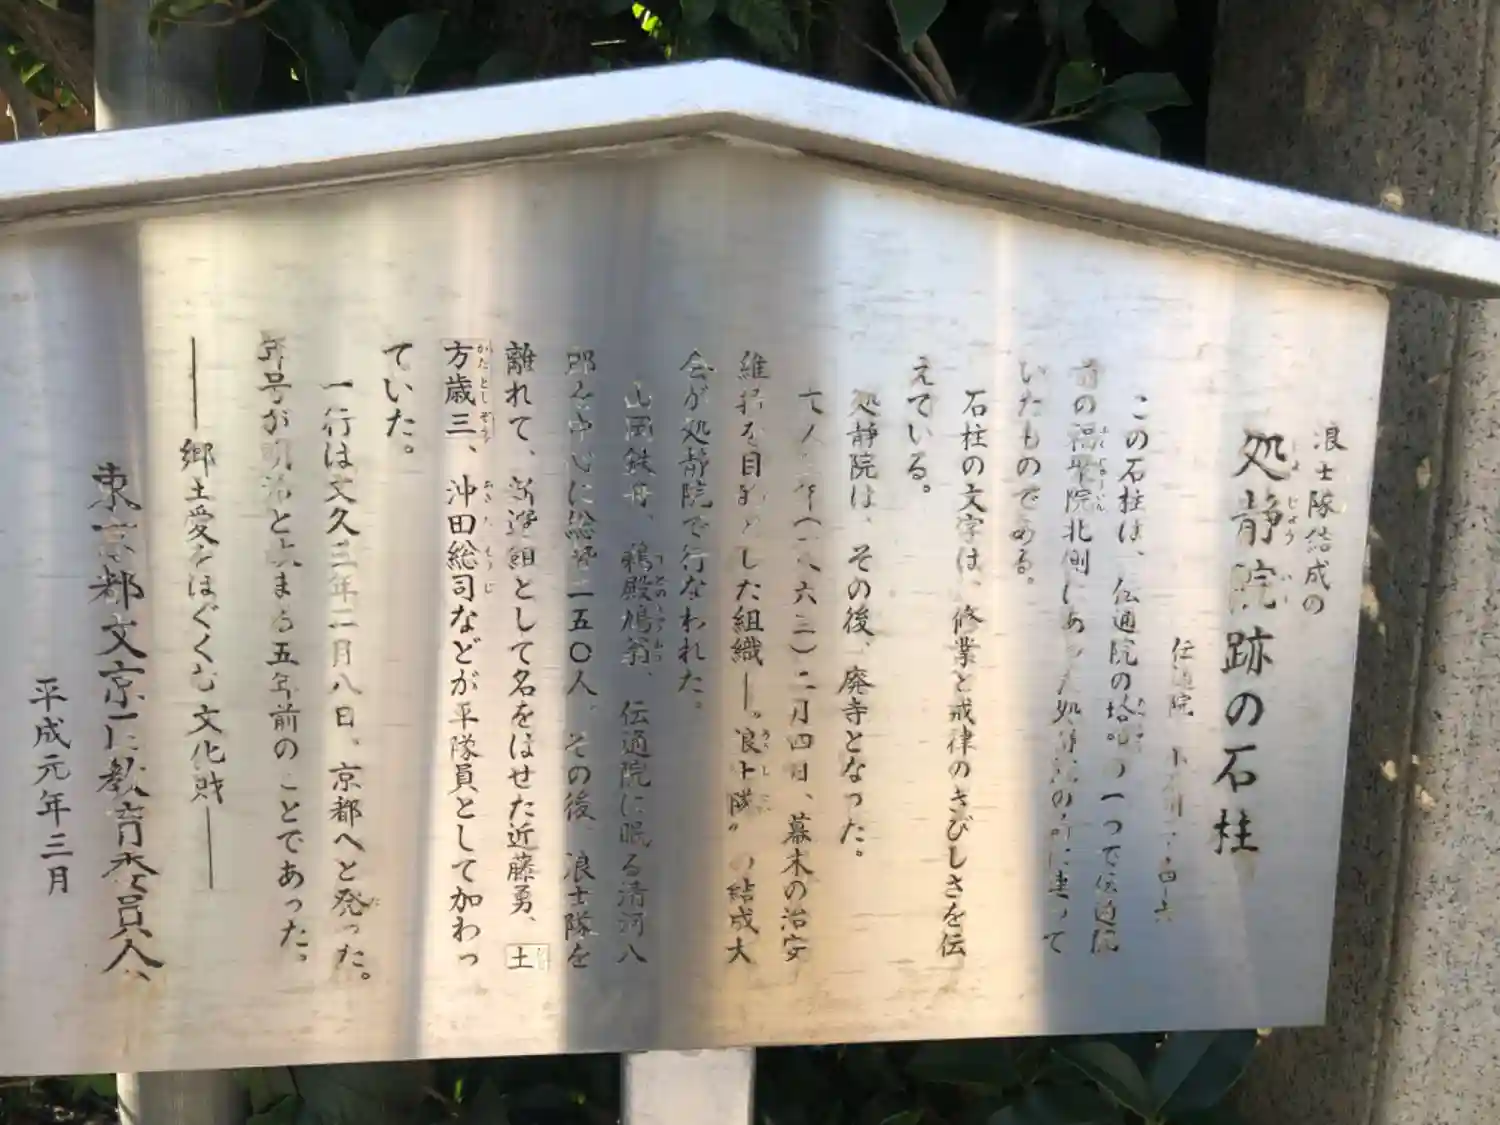 浪士隊結成の
処静院跡の石柱
伝通院
この石柱は、伝通院の塔頭の一つで伝通院
前の福聚院北側にあった処静院の前に建って
いたものである。
石柱の文字は、修業と戒律のきびしさを伝
えている。
処静院は、その後、廃寺となった。
文久三年(一八六三)二月四日、幕末の治安
維持を目的とした組織―"浪士隊"の結成大
会が処静院で行なわれた。
山岡鉄舟、鵜殿鳩翁、伝通院に眠る清河八
郎を中心に総勢二五〇人。その後、浪士隊を
離れて、新選組として名をはせた近藤勇、土
方歳三、沖田総司などが平隊員として加わっ
ていた。
一行は文久三年二月八日、京都へと発った。
年号が明治と改まる五年前のことであった。
――郷土愛をはぐくむ文化財――
東京都文京区教育委員会
平成元年三月